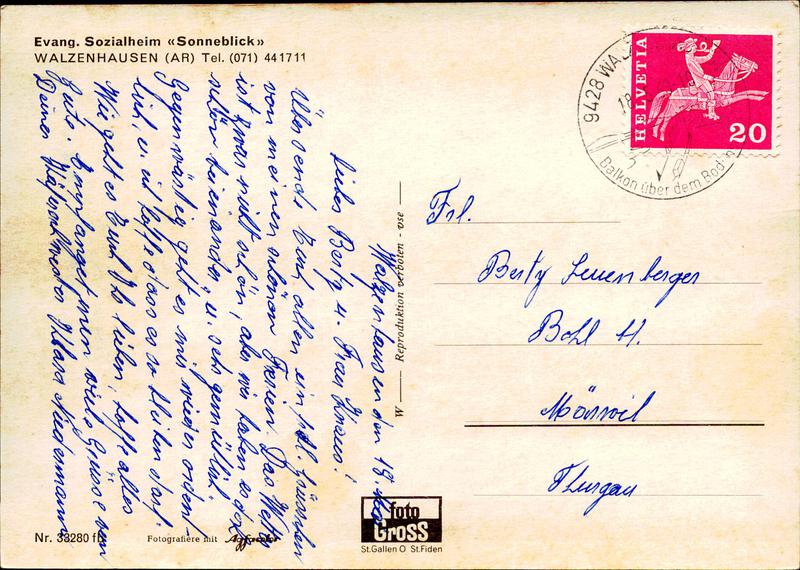 Evang. Sozialheim «Sonneblick»
WALZENHAUSEN (AR) Tel. (071) 44 17 11
Walzenhausen den 18.
Liebes Berty u. Frau
Übersende Euch allen ein frl. Grüsschen
von meinen schönen Ferien. Das Wetter
ist zwar nicht schön, aber wir haben es doch
schön beieinander, u. sehr gemütlich.
Gegenwärtig geht es mir wieder ordent-
lich, u. ich hoffe dass es so bleiben darf.
Wie geht es Euch Ihr lieben, hoffe alles
Gute. Empfanget nun viele Grüsse von
Deiner Klara Niedermann
W — Reproduktion verboten - vse —
9428 WALZ
18.
Balkon über dem Bod
HELVETIA
20
Frl.
Berty Leuenberger
Bohl
Mörswil
Thurgau
Nr. 33280
Fotografiere mit Agfacolor
foto
Gross
St.Gallen O St.Fiden